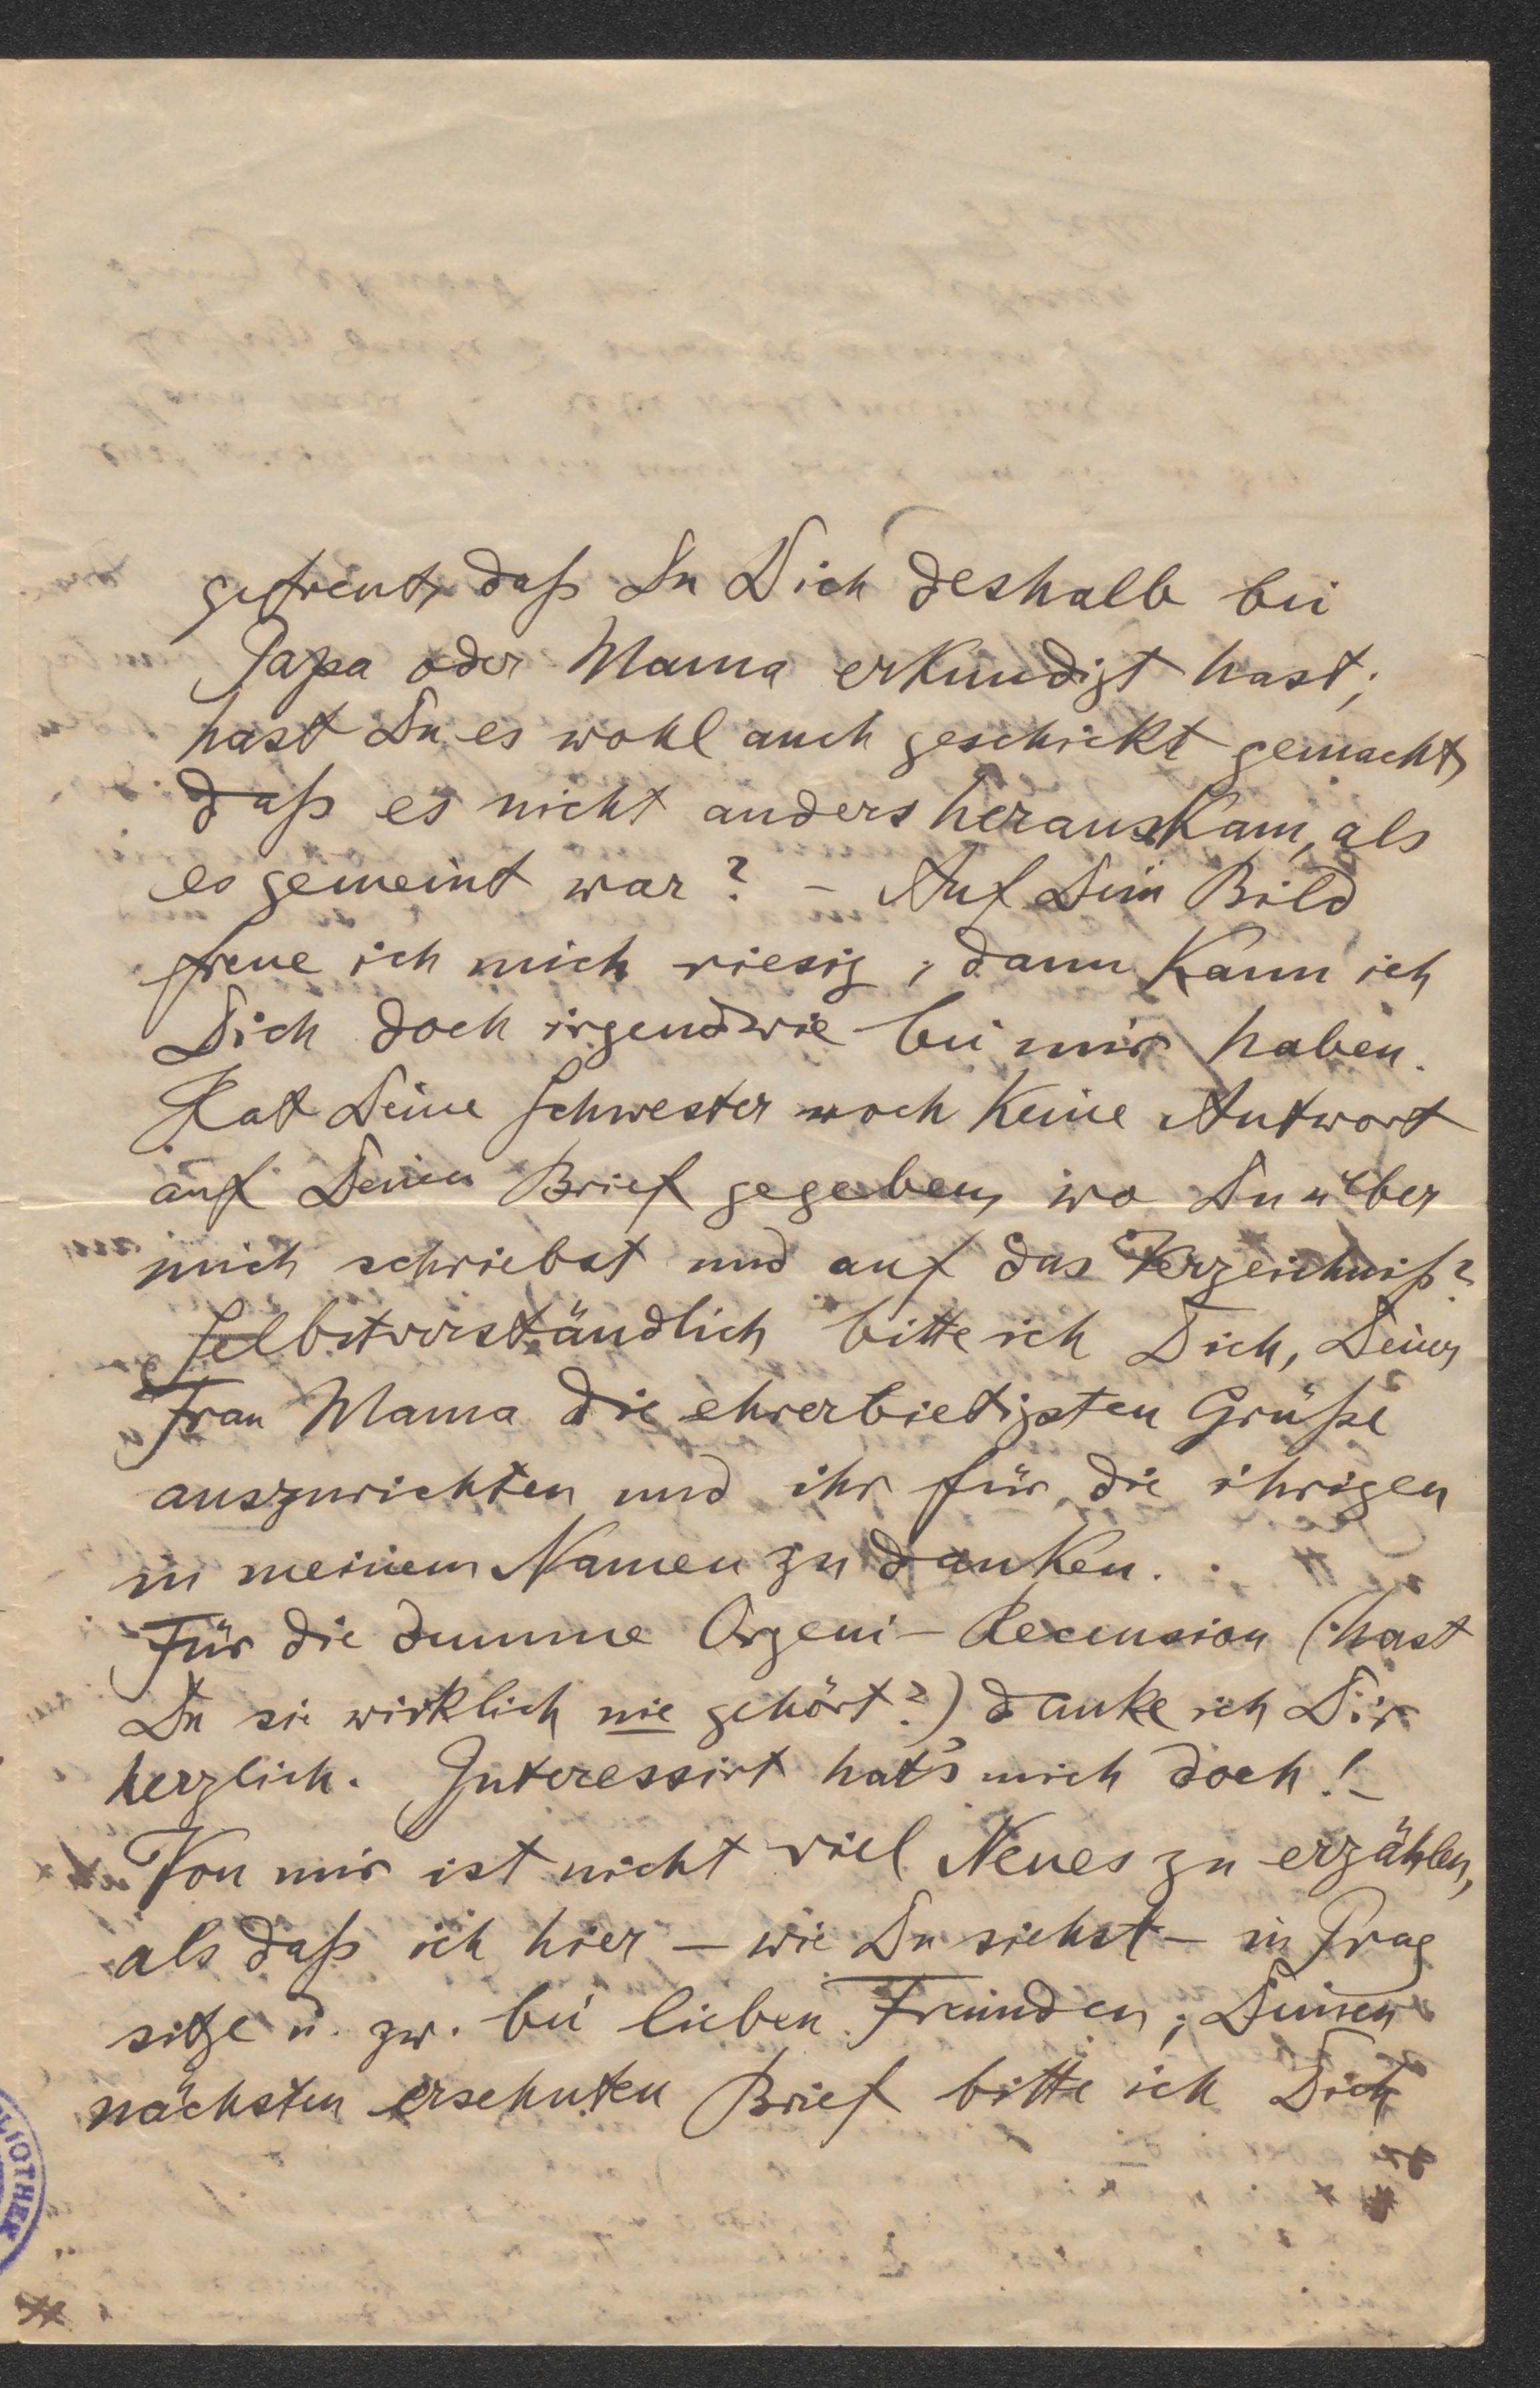 gefreut, daß Du Dich deshalb bei
Papa oder Mama erkundigt hast;
hast Du es wohl auch geschickt gemacht,
daß es nicht anders herauskam, als
es gemeint war? – Auf Dein Bild
freue ich mich riesig; dann kann ich
Dich doch irgendwie bei mir haben.
Hat Deine Schwester noch keine Antwort
auf Deinen Brief gegeben, wo Du über
mich schriebst und auf das Verzeichniß?
Selbstverständlich bitte ich Dich, Deiner
Frau Mama die ehrerbietigsten Grüße
auszurichten und ihr für die ihrigen
in meinem Namen zu danken.
Für die dumme Orgeni-Recension (hast
Du sie wirklich nie gehört?) danke ich Dir
herzlich. Interessirt hat's mich doch! –
Von mir ist nicht viel Neues zu erzählen,
als daß ich hier – wie Du siehst – in Prag
sitze u. zw. bei lieben Freunden; Deinen
nächsten ersehnten Brief bitte ich Dich
LIOTHEK